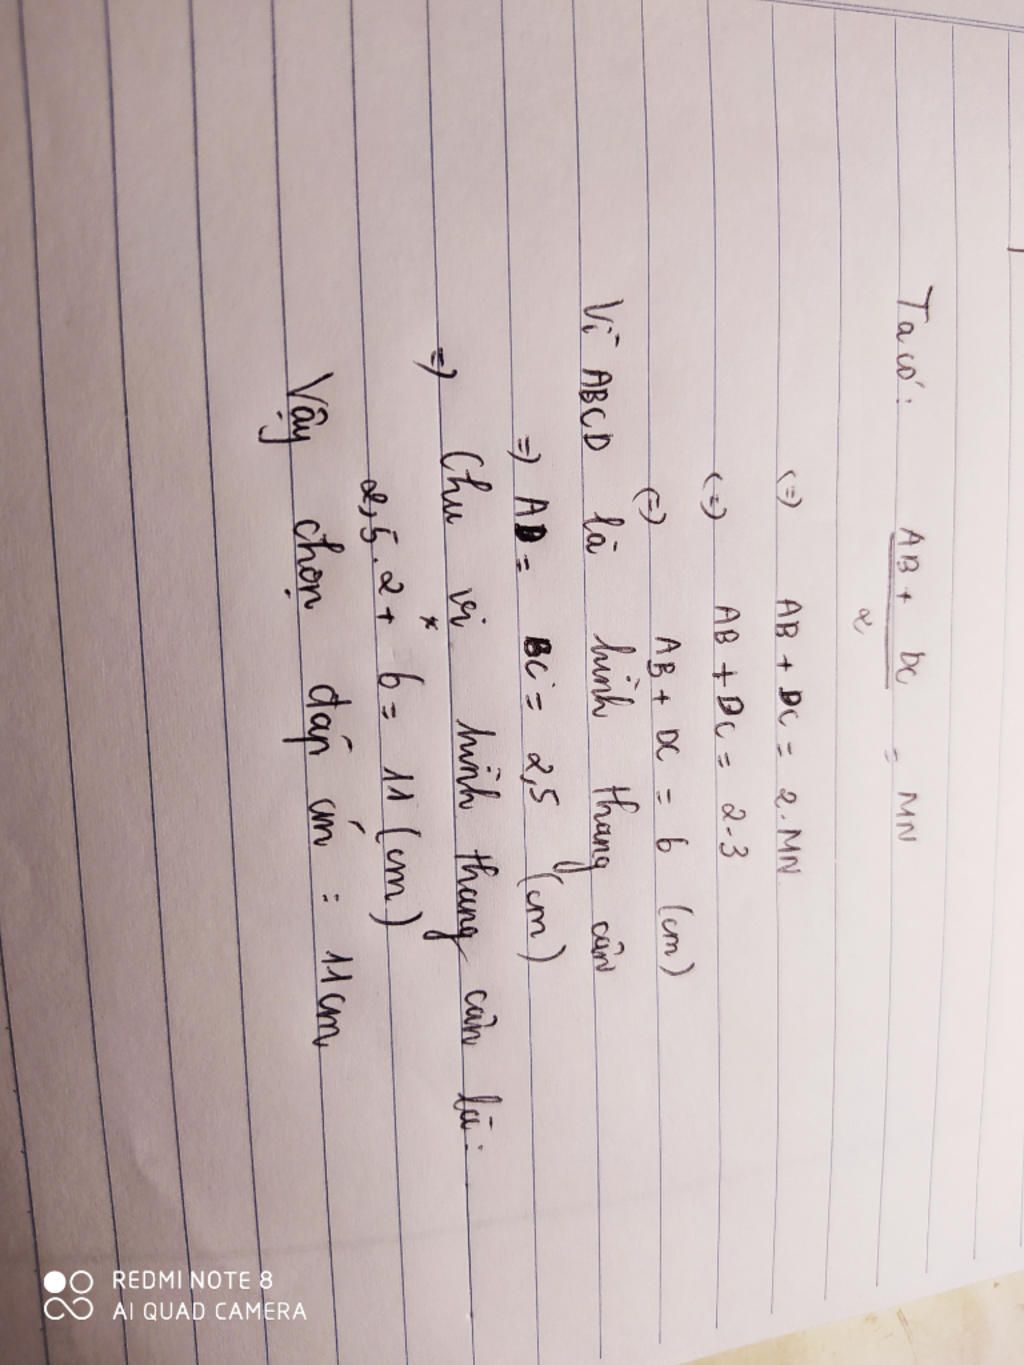 Ta có: AB + DC / 2 = MN
(=) AB + DC = 2.MN
(=) AB + DC = 2.3
(=) AB + DC = 6 (cm)
Vì ABCD là hình thang cân
=) AD = BC = 2,5 (cm)
=) Chu vi hình thang cân là:
2,5.2 + 6 = 11 (cm)
Vậy chọn đáp án: 11cm
REDMI NOTE 8
AI QUAD CAMERA